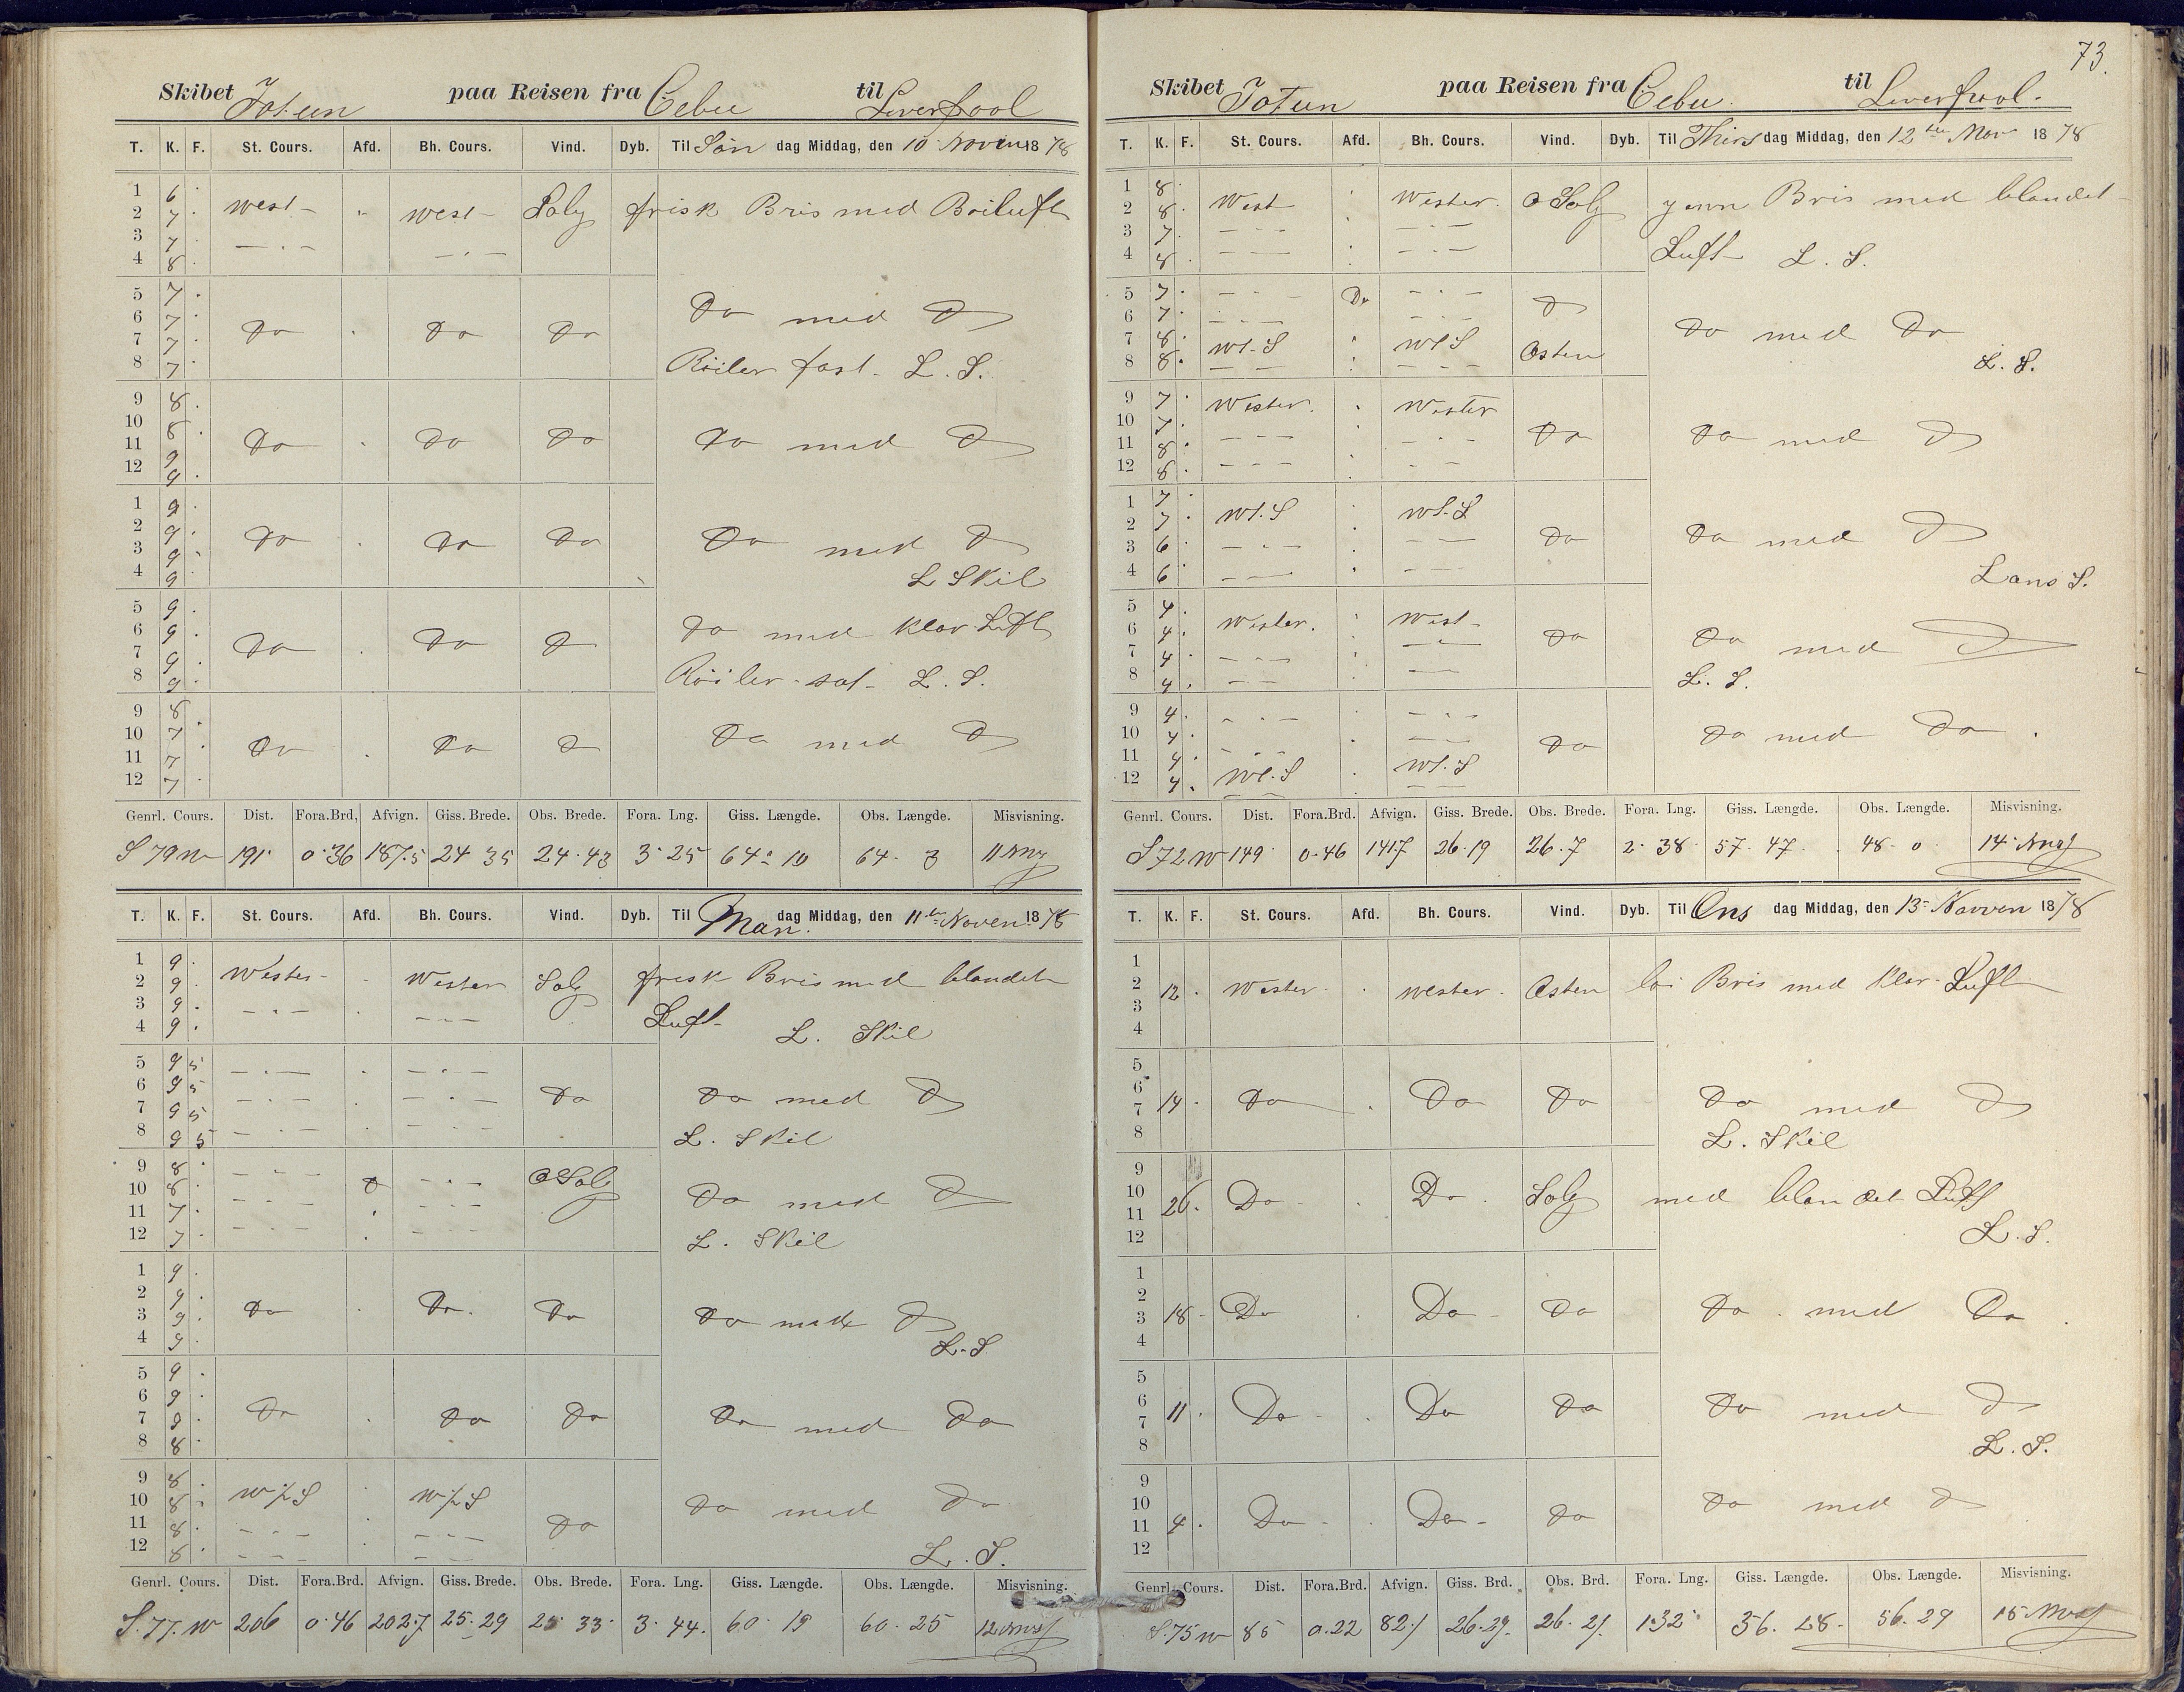 Skibet Jotun paa Reisen fra Cebu til Liverpool
T. K. F. St. Cours. Afd. Bh. Cours. Vind. Dyb. Til Søn dag Middag, den 10 Novem 1878
1 6 .
2 7 . west - west - Solg frisk Bris med Boiluft
3 7 . — . — — . —
4 8 .
5 7 .
6 7 . Do Do Do Do med D
7 7 .
8 7 . Röiler fast. L. S.
9 8 .
10 8 .
11 9 Do Do Do Do med D
12 9 .
1 9 .
2 9 . Do Do Do Do med D
3 9 .
4 9 L Skil
5 9 .
6 9 . Do Do D Do med klar Luft
7 9 .
8 9 . Röiler sat - L. S.
9 8
10 7 . Do Do D Do med D
11 7
12 7 .
Genrl. Cours. Dist. Fora.Brd. Afvign. Giss. Brede. Obs. Brede. Fora. Lng. Giss. Længde. Obs. Længde. Misvisning.
S 79 W 191 0·36 187.5 24 35 24·43 3·25 64· 10 64· 3 11
T. K. F. St. Cours. Afd. Bh. Cours. Vind. Dyb. Til Man dag Middag, den 11te Novem 1878
1 9 .
2 9 . Wester - Wester Solg frisk Bris med blandet
3 9 . — . —
4 9 . Luft - L. Skil
5 9 5 — . — — . —
6 9 5 Do Do med D
7 9 5 — . — — . —
8 9 5 — . — L. Skil
9 8 .
10 8 . — . — O Solg Do med D
11 7 .
12 7 . L. Skil
1 9 .
2 9 .
3 9 . Do Do. Do Do med D
4 9 . L. S
5 9 .
6 9 .
7 9 . Do Do Do Do med Do
8 8 .
9 8 .
10 8 . W½S W½S Do med Do
11 8 . Do
12 8 . L. S.
Genrl. Cours. Dist. Fora.Brd. Afvign. Giss. Brede. Obs. Brede. Fora. Lng. Giss. Længde. Obs. Længde. Misvisning.
S. 77. W 206 0·46 202.7 25·29 25 33 3·44. 60· 19 60· 25 12
73.
Skibet Jotun paa Reisen fra Cebu til Liverpool.
T. K. F. St. Cours. Afd. Bh. Cours. Vind. Dyb. Til Thirs dag Middag, den 12te Nov 1878
1 8 .
2 8 . West Wester. O Solg jevn Bris med blandet
3 7 . — - —
4 8 . Luft - L. S.
5 7 . — . — Do — . — D
6 7 . Do med Do
7 8 . W½S W½S Osten
8 8 . L. S.
9 7 . Wester. Wester
10 7 .
11 8 . Do Do med D
12 8 .
1 7 .
2 7 . W½.S W½.S
3 6 . Do Do med D
4 6 Lans S.
5 4 .
6 4 . Wester. West - Do Do med D
7 4 .
8 4 . L. S.
9 4 .
10 4 . Do Do med Do .
11 4 .
12 4 . W½.S W½.S
Genrl. Cours. Dist. Fora.Brd. Afvign. Giss. Brede. Obs. Brede. Fora. Lng. Giss. Længde. Obs. Længde. Misvisning.
S 72 W 149 0·46 141.7 26·19 26·7 2·38 57·47 48·0 14
T. K. F. St. Cours. Afd. Bh. Cours. Vind. Dyb. Til Ons dag Middag, den 13 Novem 1878
1
2 12 . Wester. Wester. Osten løi Bris med klar Luft
3
4
5
6
7 14 . Do Do Do Do med D
8 L. Skil
9
10
11 26 . Do Do . Solg med blandet Luft
12 L. S.
1
2
3 18 - Do Do - Do Do . med Do
4
5
6 11 . Do - Do Do Do med D
7
8 L. S.
9
10 Do med D
11 4 . Do - Do - Do
12
Genrl. Cours. Dist. Fora.Brd. Afvign. Giss. Brd. Obs. Brd. Fora. Lng. Giss. Længde. Obs. Længde. Misvisning.
S. 75 W 85 0.22 82.1 26·29. 26·21. 1·32 56. 28 - 56·29 15